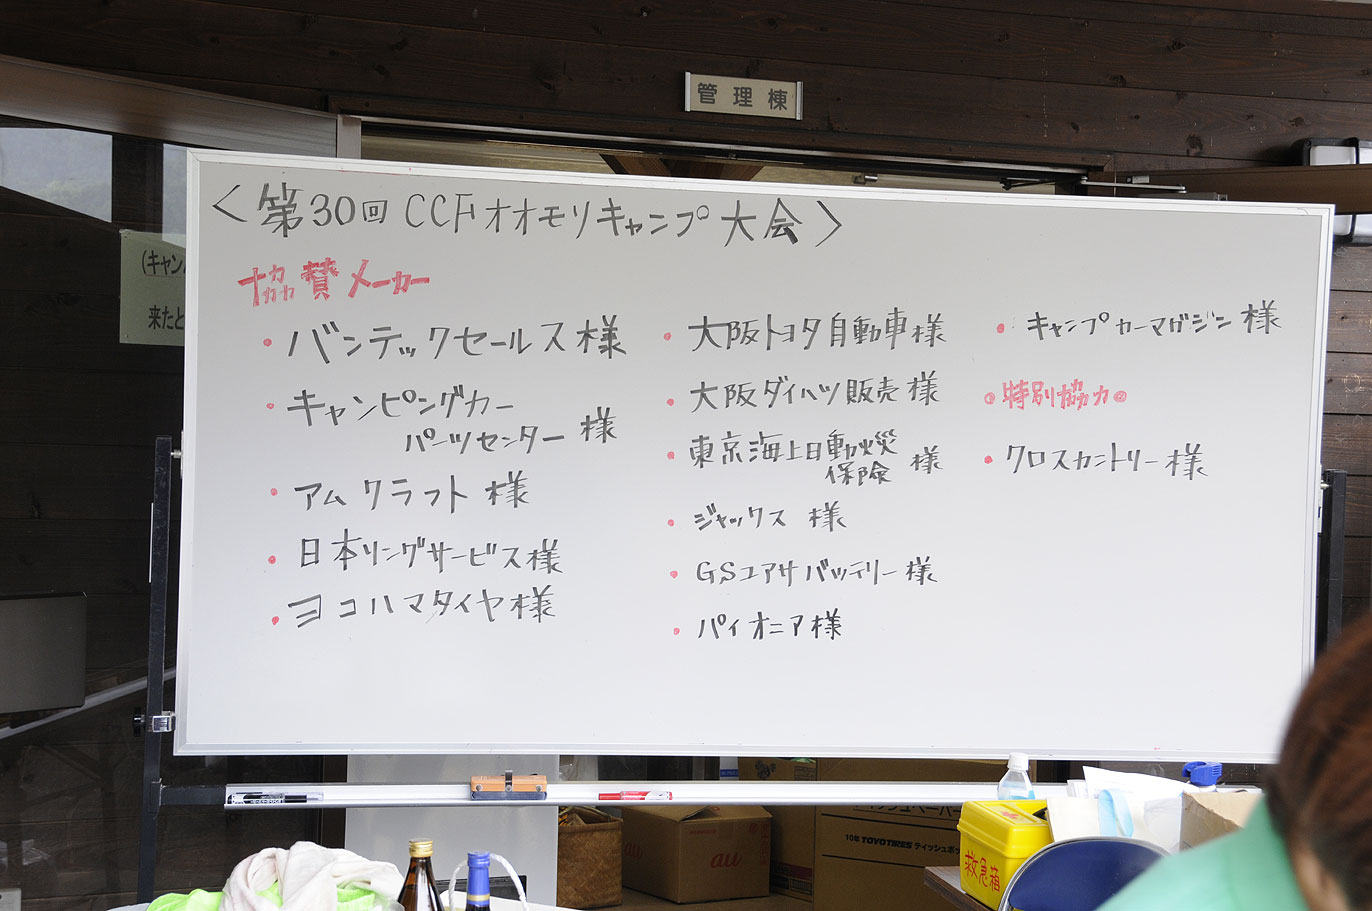 管理棟
<第30回 CCFオオモリキャンプ大会>
協賛メーカー
・バンテックセールス様
・キャンピングカー
パーツセンター 様
・アムクラフト 様
・日本リングサービス様
・ヨコハマタイヤ様
・大阪トヨタ自動車様
・大阪ダイハツ販売様
・東京海上日動火災
保険 様
・ジャックス 様
・GSユアサバッテリー様
・パイオニア様
・キャンプカーマガジン様
◦特別協力◦
・クロスカントリー様
(キャン
来たと
au
10年 TOYO TIRES ティッシュボッ
救急箱